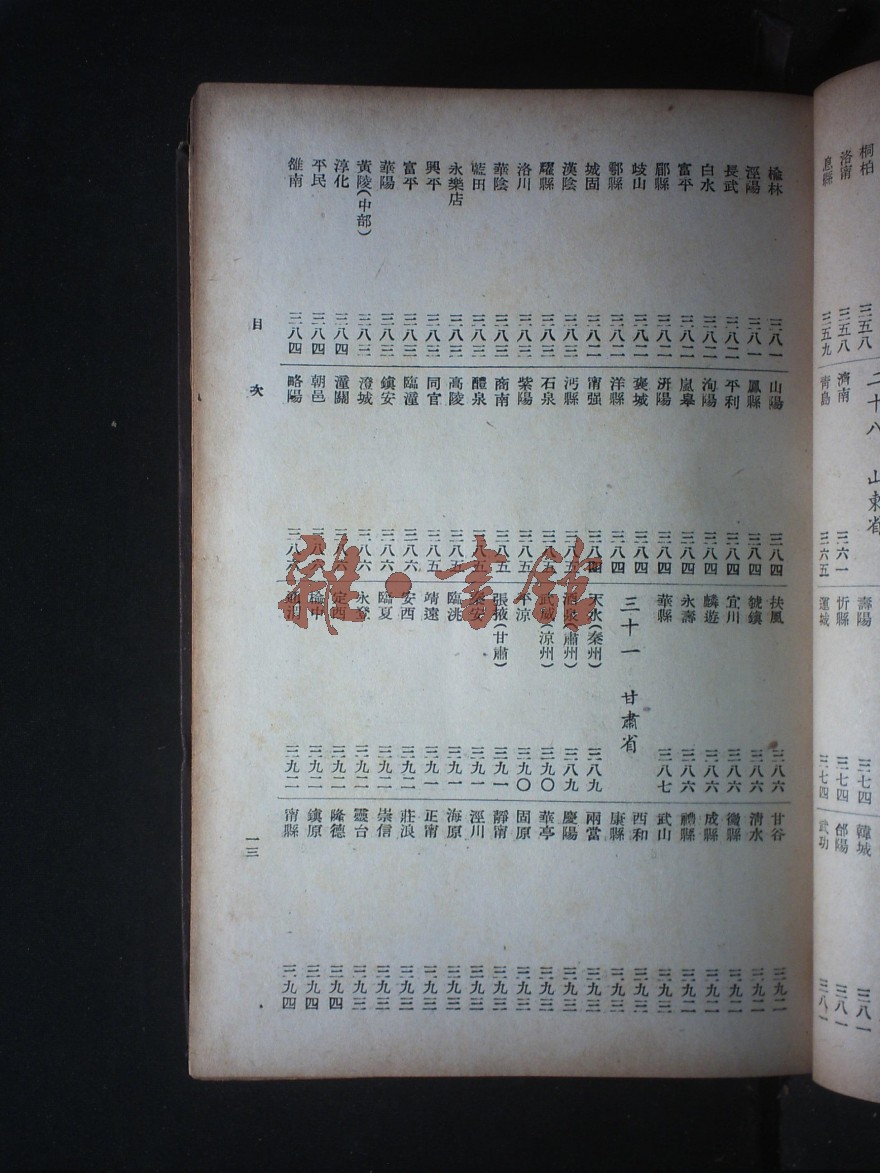 桐柏 三五八
洛南 三五八
息縣 三五九
二十八 山東省
濟南 三六一
青島 三六五
壽陽 三七四
忻縣 三七四
運城 三七四
韓城 三八一
郃陽 三八一
武功 三八一
榆林 三八一
涇陽 三八一
長武 三八二
白水 三八二
富平 三八二
郿縣 三八二
岐山 三八二
鄠縣 三八二
城固 三八二
漢陰 三八三
耀縣 三八三
洛川 三八三
華陰 三八三
藍田 三八三
永樂店 三八三
興平 三八三
富平 三八三
華陽 三八三
黃陵(中部) 三八三
淳化 三八四
平民 三八四
雒南 三八四
山陽 三八四
鳳縣 三八四
平利 三八四
洵陽 三八四
嵐皋 三八四
汧陽 三八四
褒城 三八四
洋縣 三八四
甯强 三八四
沔縣 三八五
石泉 三八五
紫陽 三八五
商南 三八五
醴泉 三八五
高陵 三八五
同官 三八五
臨潼 三八六
鎮安 三八六
澄城 三八六
潼關 三八六
朝邑 三八六
略陽 三八六
扶風 三八六
虢鎮 三八六
宜川 三八六
麟遊 三八六
永壽 三八六
華縣 三八七
三十一 甘肅省
天水(秦州) 三八九
酒泉(肅州) 三八九
武威(涼州) 三九〇
平涼 三九〇
張掖(甘肅) 三九一
秦安 三九一
臨洮 三九一
靖遠 三九一
安西 三九二
臨夏 三九二
永登 三九二
定西 三九二
榆中 三九二
通渭 三九二
甘谷 三九二
清水 三九二
徽縣 三九二
成縣 三九二
禮縣 三九二
武山 三九三
西和 三九三
康縣 三九三
兩當 三九三
慶陽 三九三
華亭 三九三
固原 三九三
靜甯 三九三
涇川 三九三
海原 三九三
正甯 三九三
莊浪 三九三
崇信 三九三
靈台 三九三
隆德 三九四
鎮原 三九四
甯縣 三九四
目次
一三
雜·書館